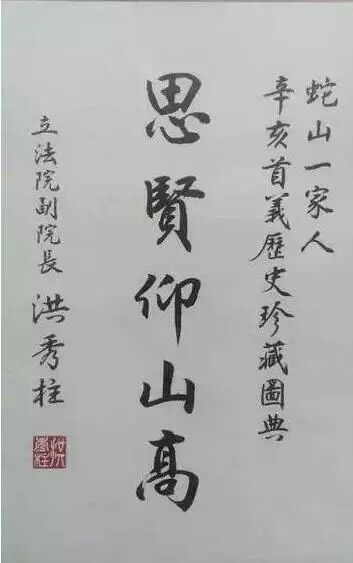 蛇山一家人
辛亥首義歷史珍藏圖典
思賢仰山髙
立法院副院長 洪秀柱
洪秀柱